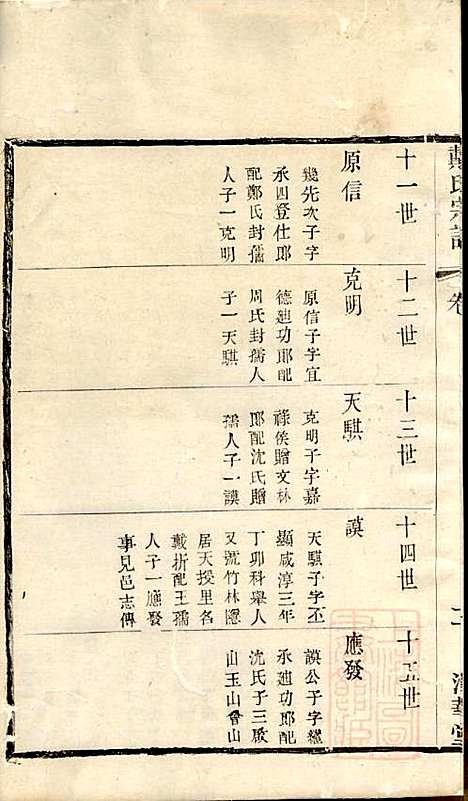 戴氏宗譜
卷
十一世
原信
幾先次子字
承四登仕郎
配鄭氏封孺
人子一克明
十二世
克明
原信子字宜
德廸功郎配
周氏封孺人
子一天騏
十三世
天騏
克明子字嘉
祿侯贈文林
郎配沈氏贈
孺人子一謨
十四世
謨
天騏子字丕
顯咸淳三年
丁卯科舉人
又號竹林隱
居天授里名
戴折配王孺
人子一應發
事見邑志傳
十五世
應發
謨公子字纘
承廸功郎配
沈氏子三啟
山玉山會山